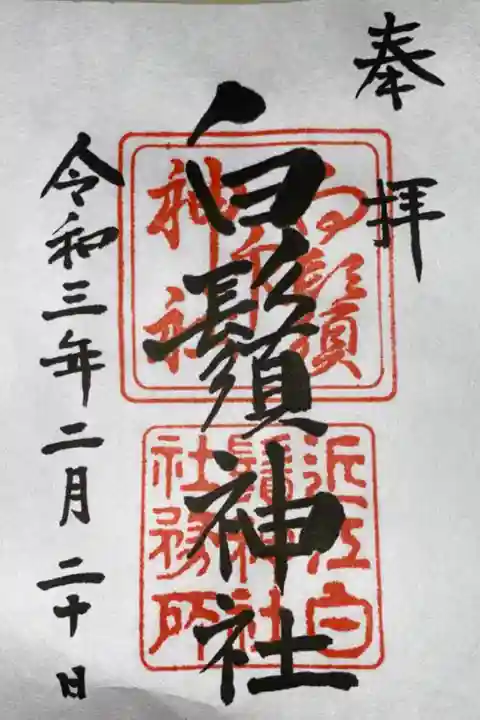 奉拝
白鬚神社
近江白
鬚神社
社務所
令和三年二月二十日